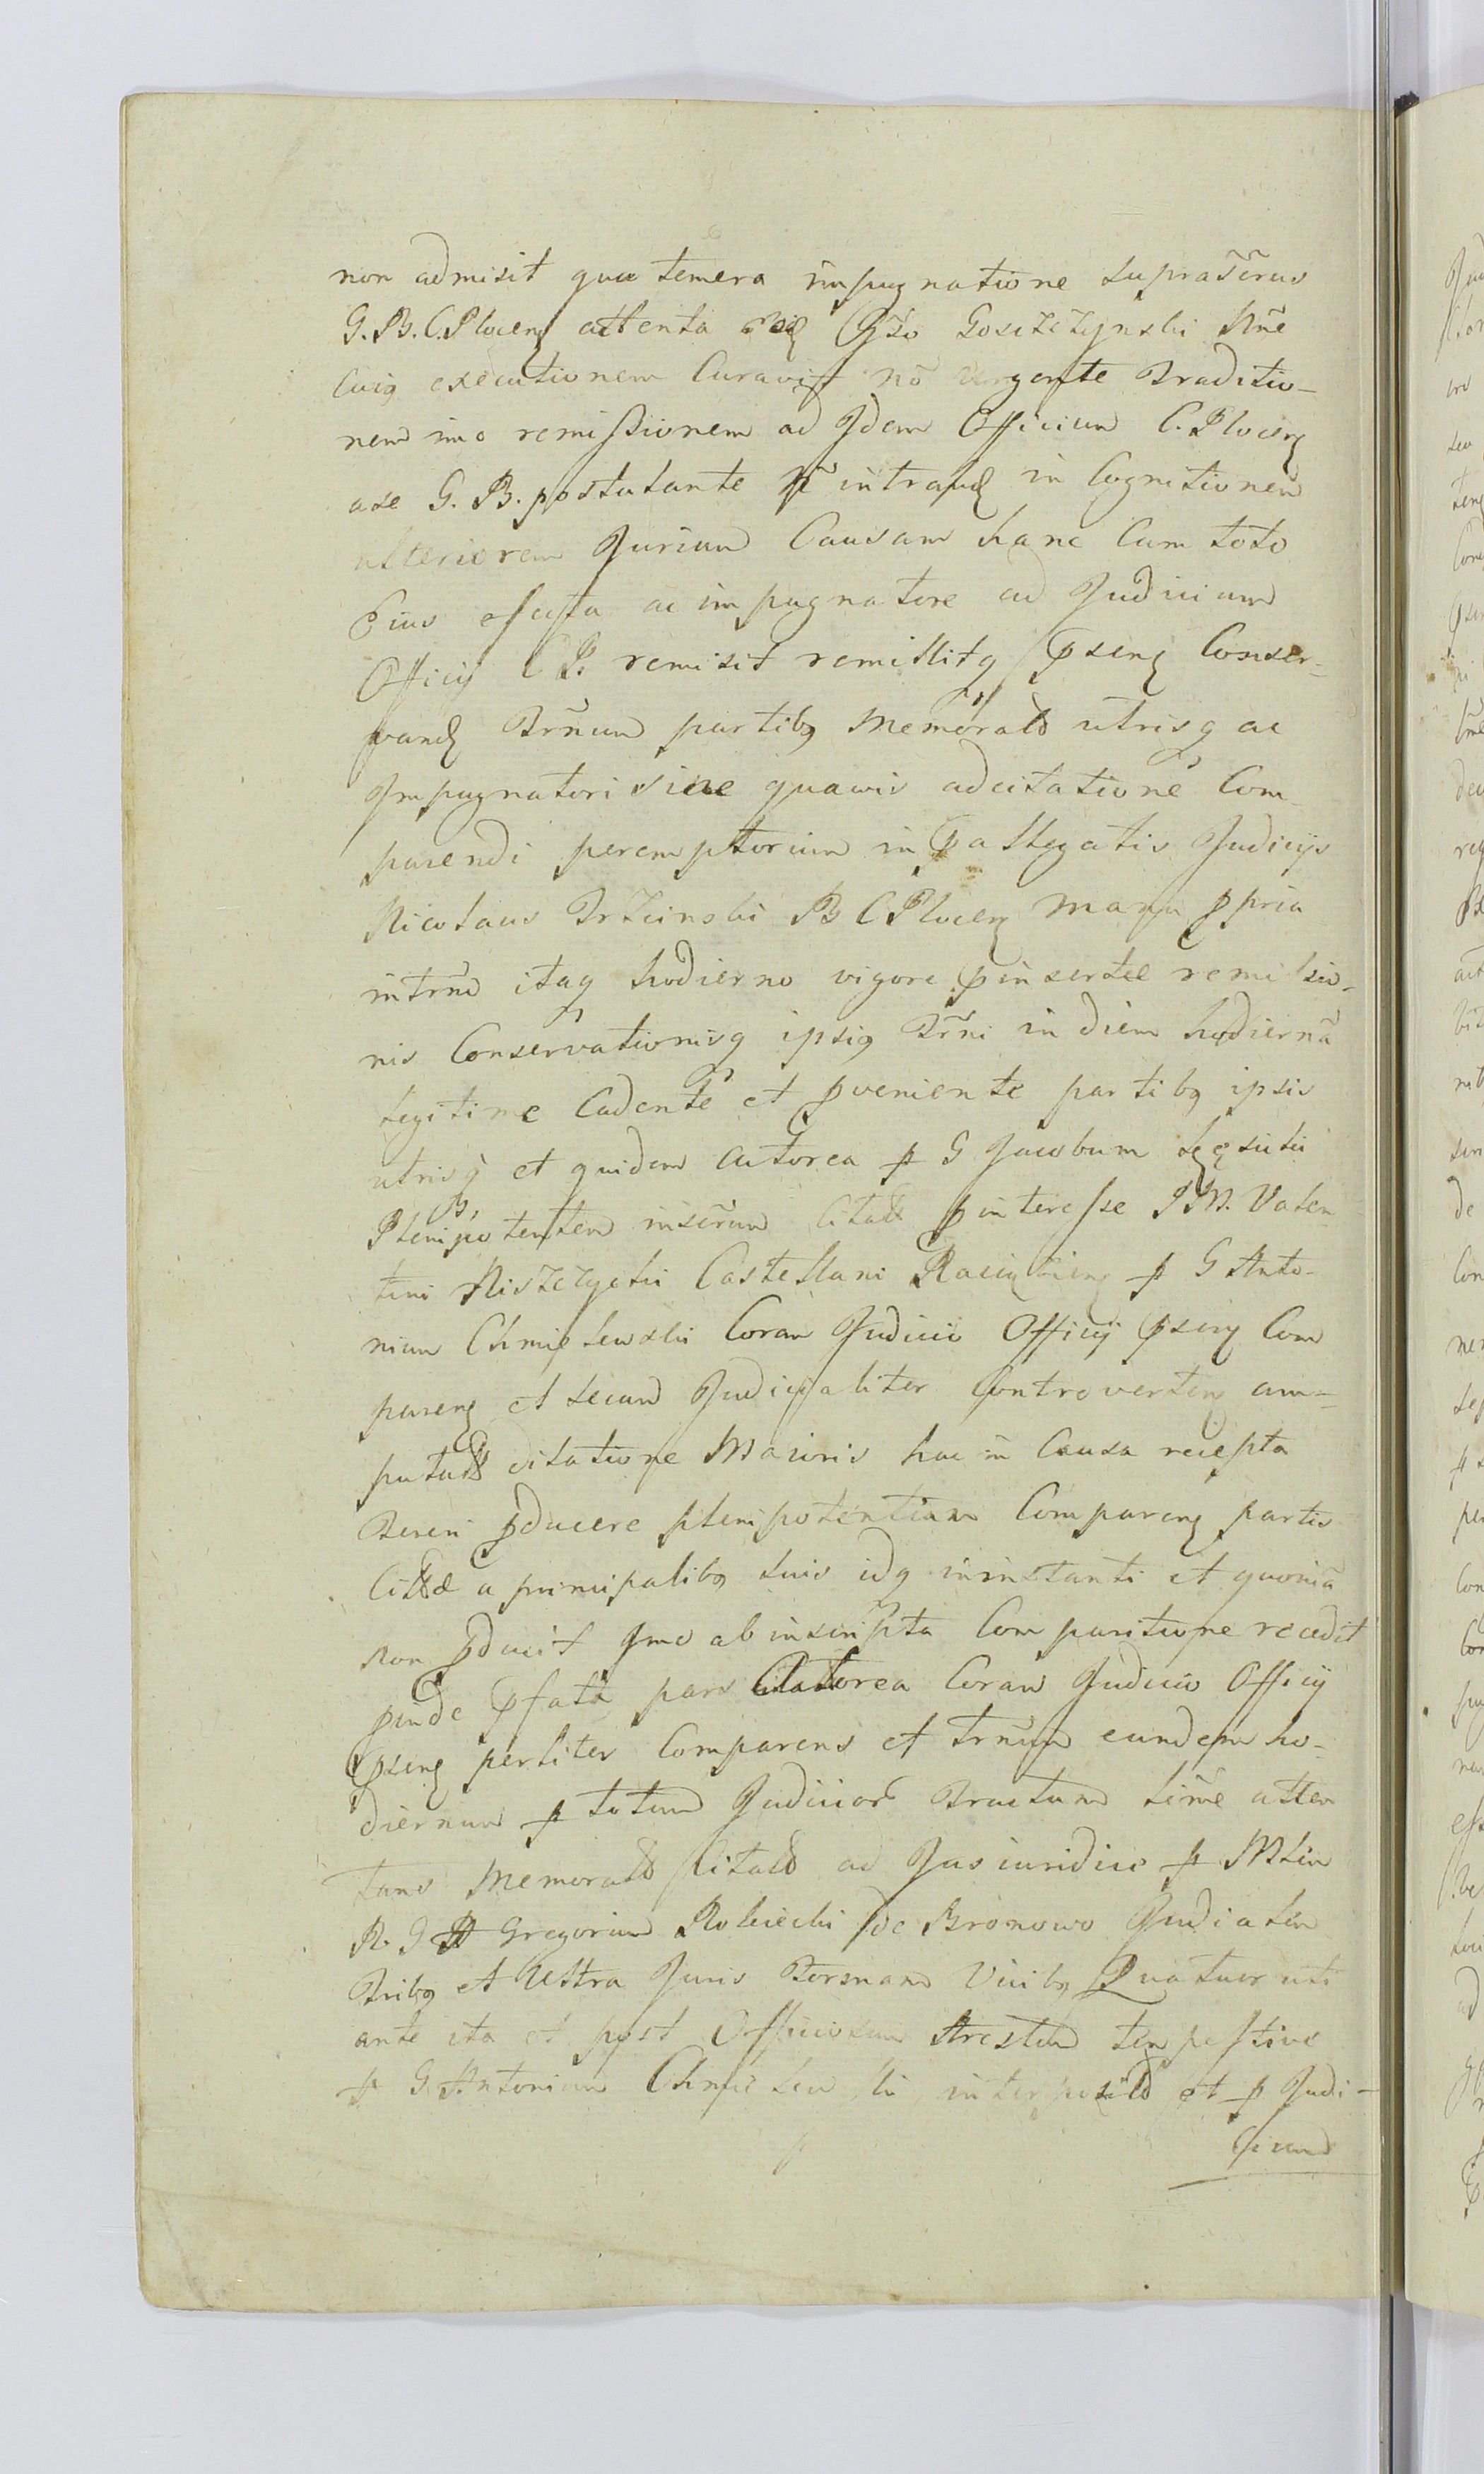 non admisit qua temera impugnatione suprascrus
G. B. C. Plocen attenta Goszczynski Nne
Cuiq executionem Curavit nō urgente Traditio-
nem imo remissionem ad Idem Officium C. Plocen
a se G. B. postulante in Cognitionem
ulteriorem Jurium Causam hanc Cum toto
Eius effectu ac impugnatore ad Judicium
Officij C P. remisit remittitq Conser-
vand Trnum partibq Memorald utrisq ac
Impugnatori sine quavis adcitatione Com-
parendi peremptorium in Pallegatis Judicijs
Nicolaus Trzcinski B C Plocen manu ppria
intrno itaq hodierno vigore pinsertae remissio-
nis Conservationisq ipsiq Trni in diem hodiernā
legitime Cadente et pveniente partibq ipsis
utrisq et quidem Actorea p G Jacobum
Plenipotentem Citatt pinteresse J W. Valen-
tini Niszczycki Castellani Raciązen p G Anto-
nium Chmielewski Coram Judicio Officij Com
paren et secum Judicialiter Controverten am-
putatt dilatione Maioris hac in Causa recepta
pducere plenipotentiam Comparen partis
Cittae a principalibq suis idq ininstanti et quoniā
non pducit Imo ab inscripta Comparitione recedit
pinde pfata pars Actorea Coram Judicio Officij
psenq perliter Comparens et trnum eundem ho-
diernum p totum Judicior Tractum atten
tans Memoratt Citatt ad Jus iuridice p Mtin
R. J Gregorium Robiecki de Bronowo
Tribq et Ultra Juris Vicibq Quatuor uti
ante ita et post Officiosum Arestum tempestive
p G. Antonium Chmielewski et p Judi-
cium